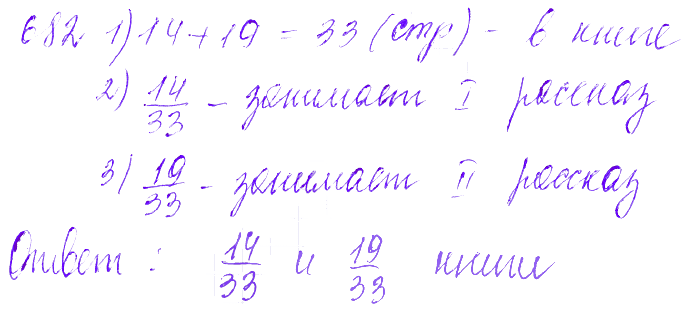 682 1) 14 + 19 = 33 (стр) - в книге
2) 14/33 - занимает I рассказ
3) 19/33 - занимает II рассказ
Ответ : 14/33 и 19/33 книги